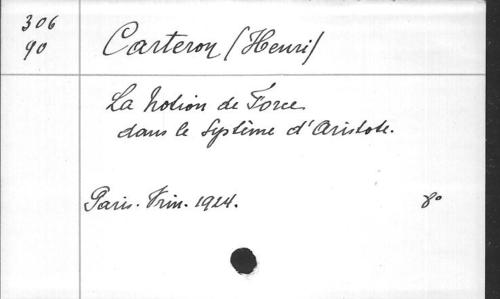 306
90
Carteron (Henri)
La Notion de Force
dans le Système d'Aristote.
Paris. Vrin. 1924.
8°